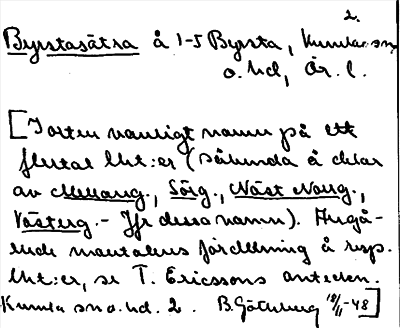 2.
Byrstasätra å 1-5 Byrsta, Kumla sn
o. hd, Ör. l.
[I orten vanligt namn på ett
flertal lht:er (sålunda å delar
av Mellang., Sörg., Näst Norrg.,
Västerg. - Jfr dessa namn). Angå-
ende mantalens fördelning å resp.
lht:er, se T. Ericssons anteckn.
Kumla sn o. hd. 2. B. Götling 18/11-48]